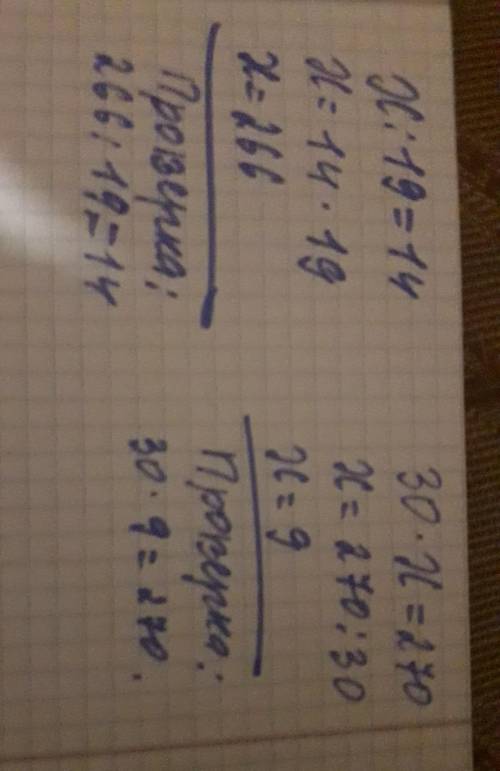 х : 19 = 14
х = 14 · 19
х = 266
Проверка:
266 : 19 = 14
30 · х = 270
х = 270 : 30
х = 9
Проверка:
30 · 9 = 270.